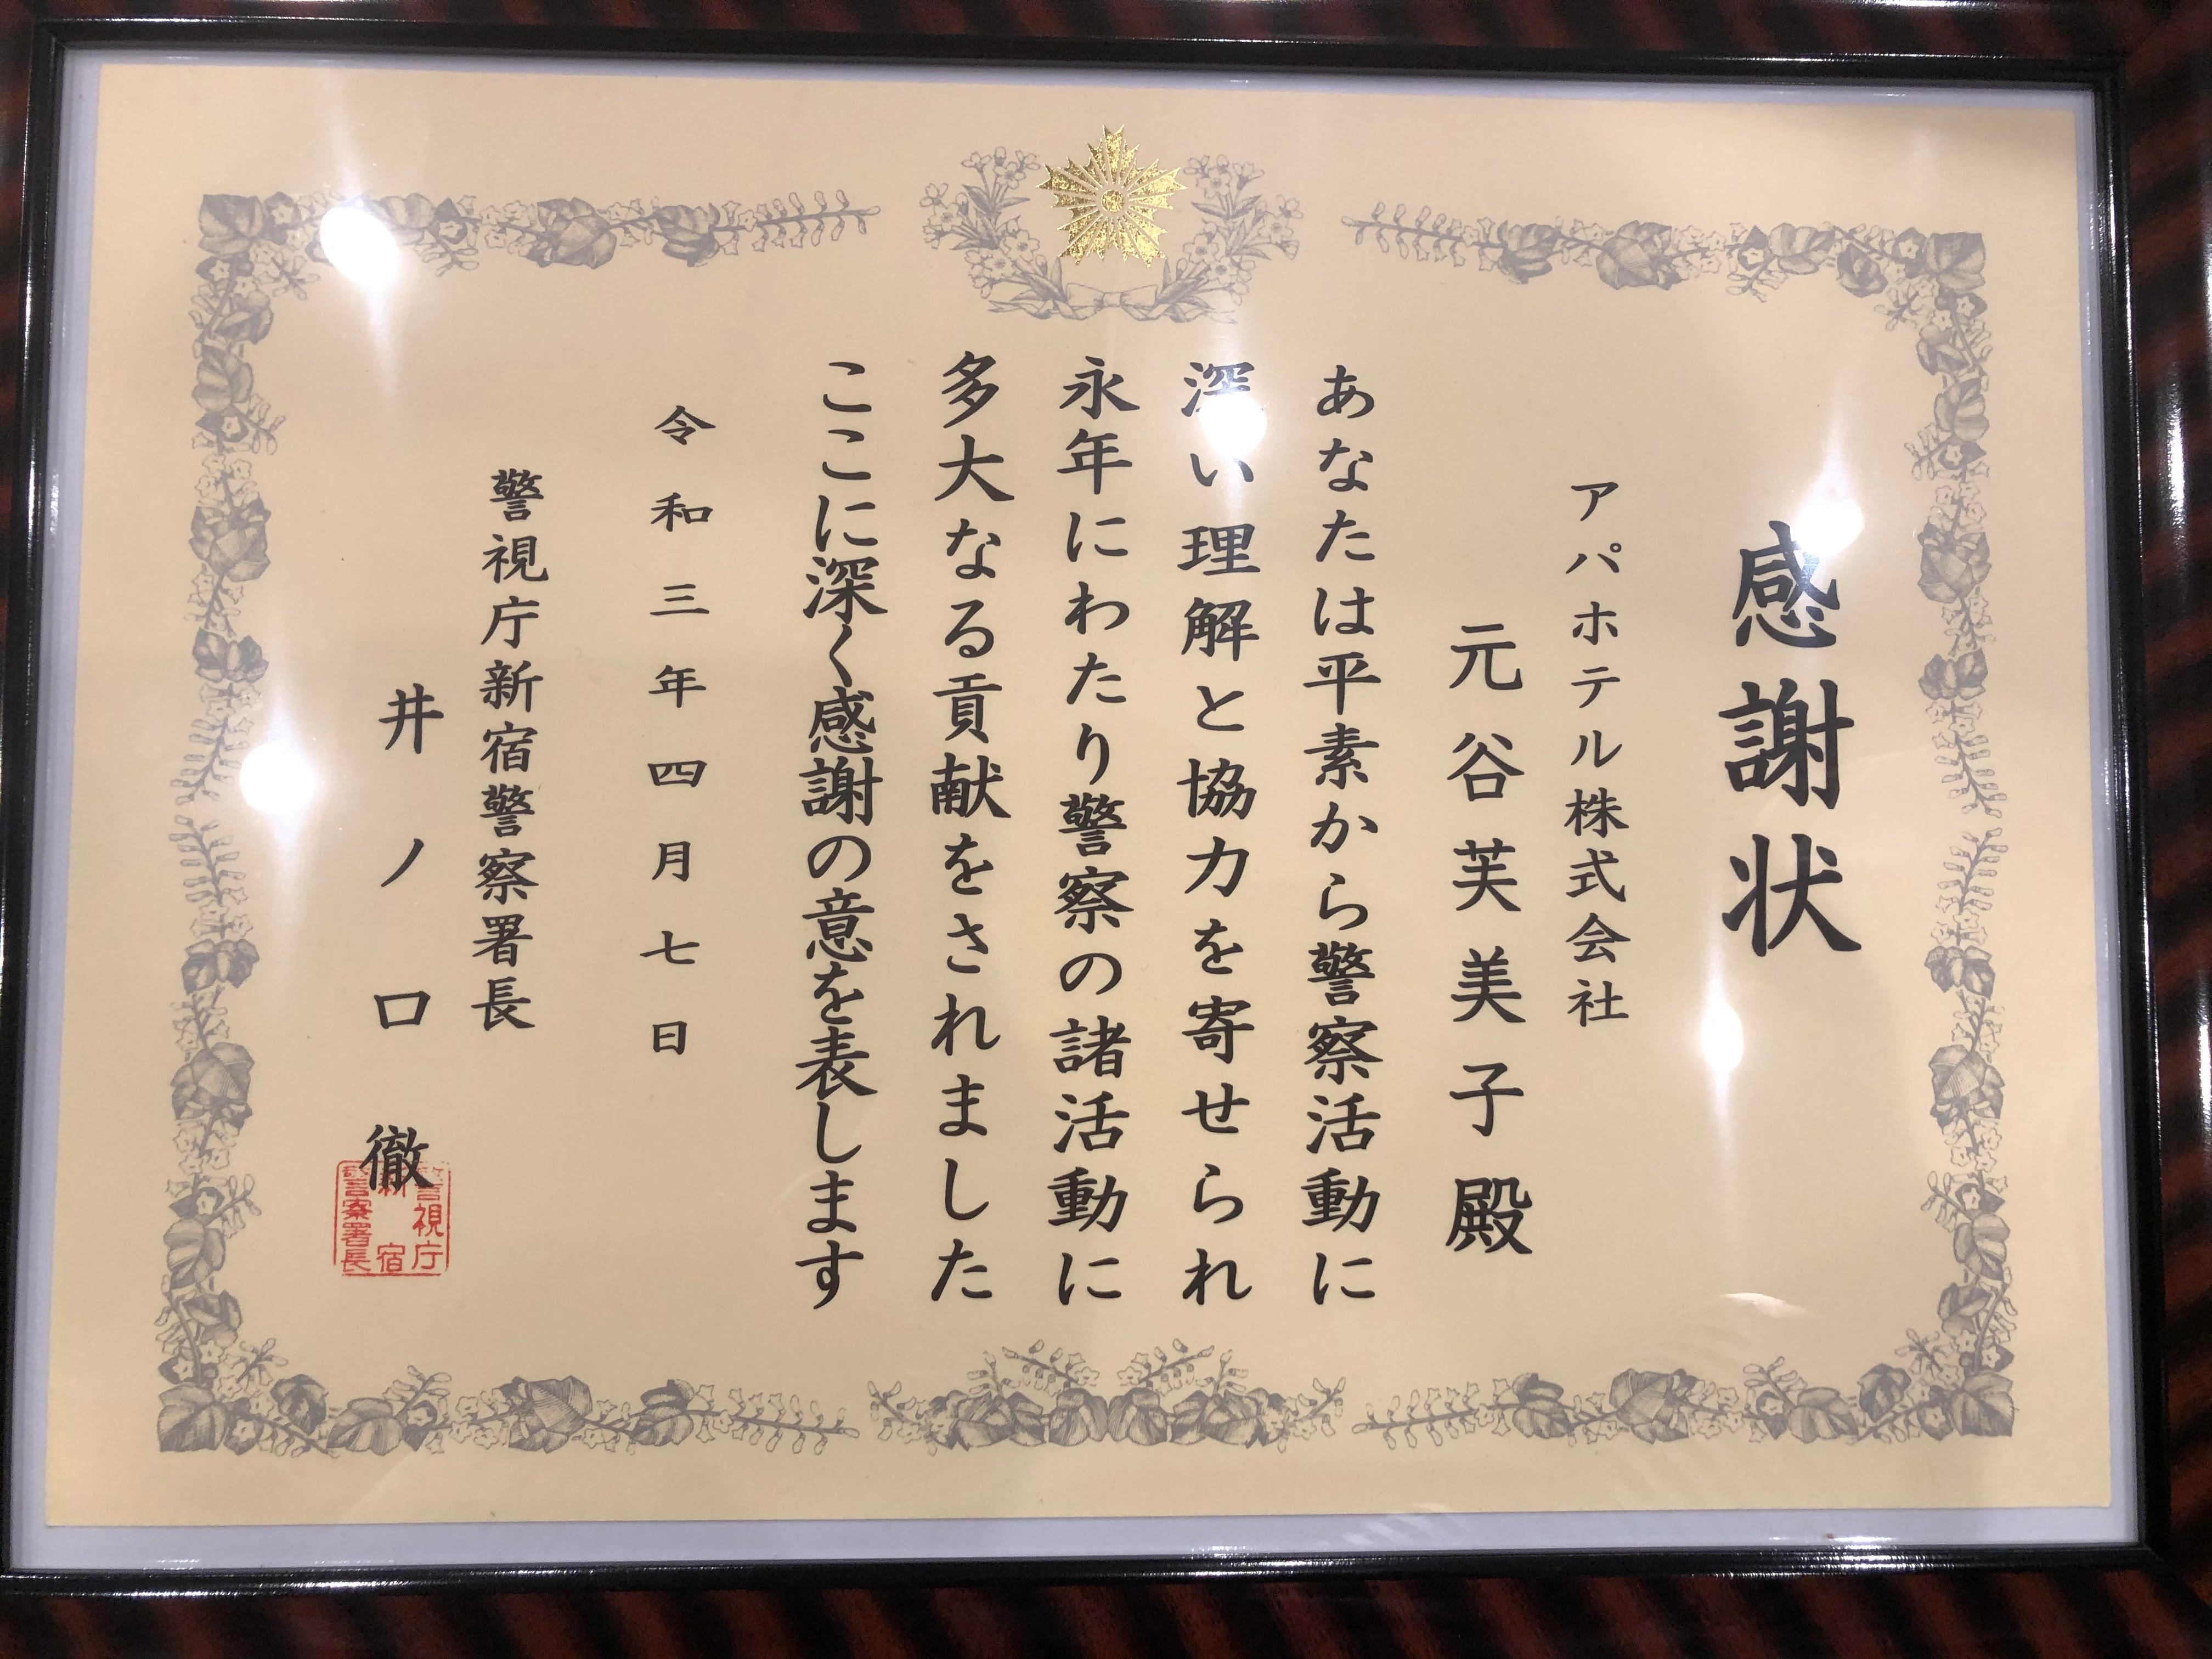 感謝状
アパホテル株式会社
元谷芙美子殿
あなたは平素から警察活動に
深い理解と協力を寄せられ
永年にわたり警察の諸活動に
多大なる貢献をされました
ここに深く感謝の意を表します
令和三年四月七日
警視庁新宿警察署長
井ノ口徹
警視庁
新宿
警察署長